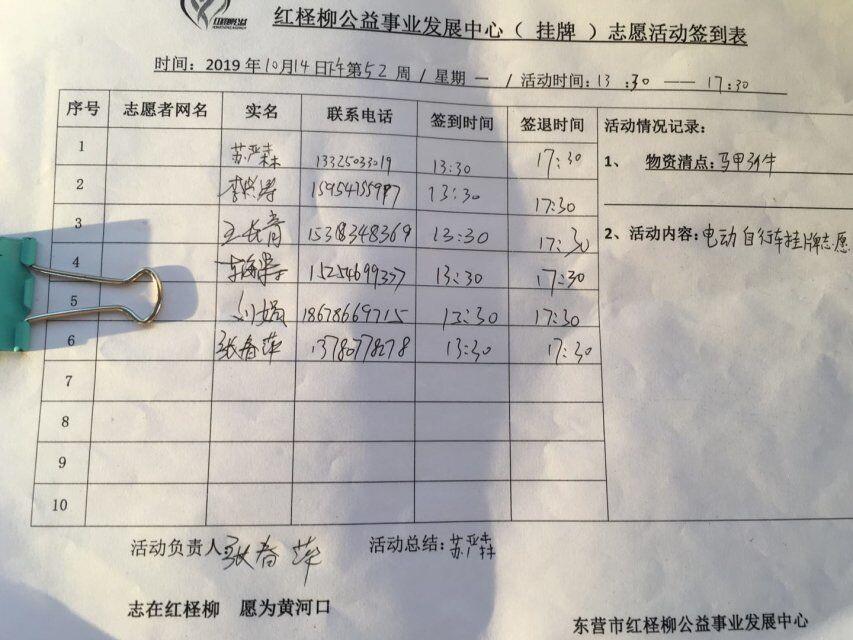 红柽柳公益事业发展中心（ 挂牌 ）志愿活动签到表
时间：2019 年10月14日 第52 周 / 星期 一 / 活动时间：13 :30 —— 17:30
序号 志愿者网名 实名 联系电话 签到时间 签退时间 活动情况记录：
1 苏严森 13325033019 13:30 17:30
1、 物资清点：马甲 件
2 13:30 17:30
3 王长青 15383348369 13:30 17:30
2、活动内容：电动自行车挂牌志愿
4 15254699337 13:30 17:30
5 刘娟 18678669715 13:30 17:30
6 张春萍 13780778278 13:30 17:30
7
8
9
10
活动负责人：张春萍 活动总结：苏严森
志在红柽柳 愿为黄河口
东营市红柽柳公益事业发展中心